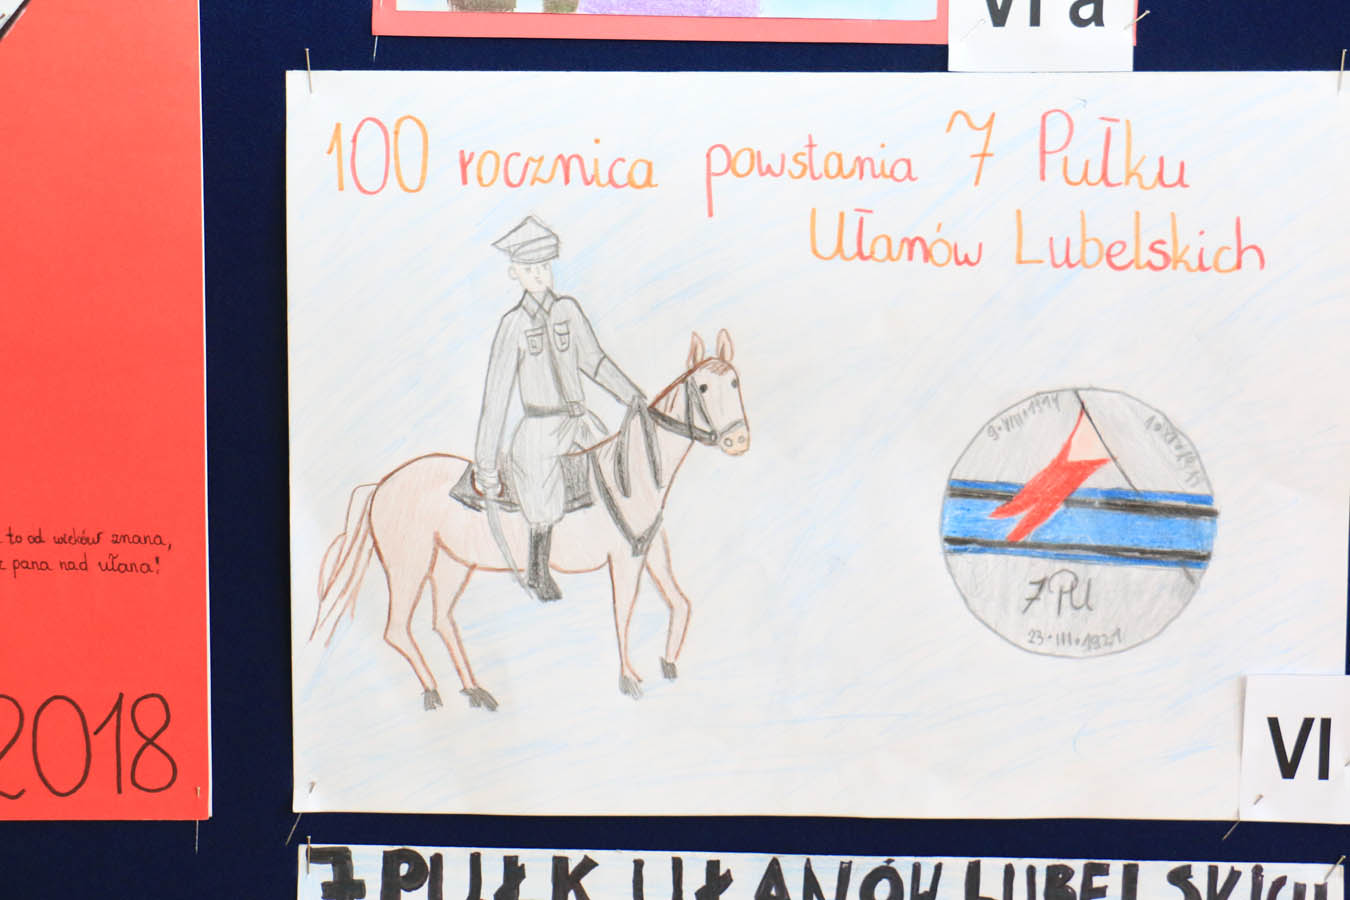 VI a
100 rocznica powstania 7 Pułku
Ułanów Lubelskich
9.VIII.1914
7 PU
23.III.1921
to od wieków znana,
pana nad ułana!
2018
VI
7 PUŁK UŁANÓW LUBELSKICH